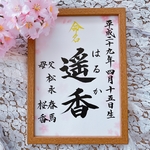 平成二十九年 四月十五日生
命名
はるか
遥香
父 松永春馬
母 桜香